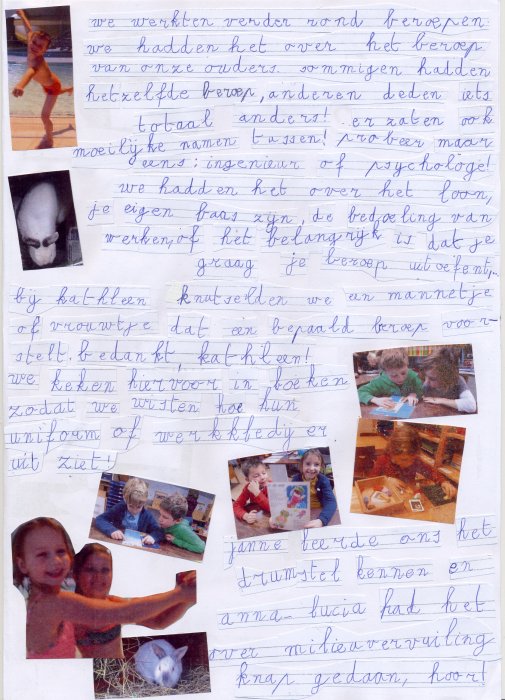 we werkten verder rond beroepen.
we hadden het over het beroep
van onze ouders. sommigen hadden
hetzelfde beroep, anderen deden iets
totaal anders! er zaten ook
moeilijke namen tussen! probeer maar
eens: ingenieur of psychologe!
we hadden het over het loon,
je eigen baas zijn, de bedoeling van
werken, of het belangrijk is dat je
graag je beroep uitoefent,...
bij kathleen knutselden we een mannetje
of vrouwtje dat een bepaald beroep voor-
stelt. bedankt, kathleen!
we keken hiervoor in boeken
zodat we wisten hoe hun
uniform of werkkledij er
uit ziet!
janne leerde ons het
drumstel kennen en
anna-lucia had het
over milieuvervuiling
knap gedaan, hoor!